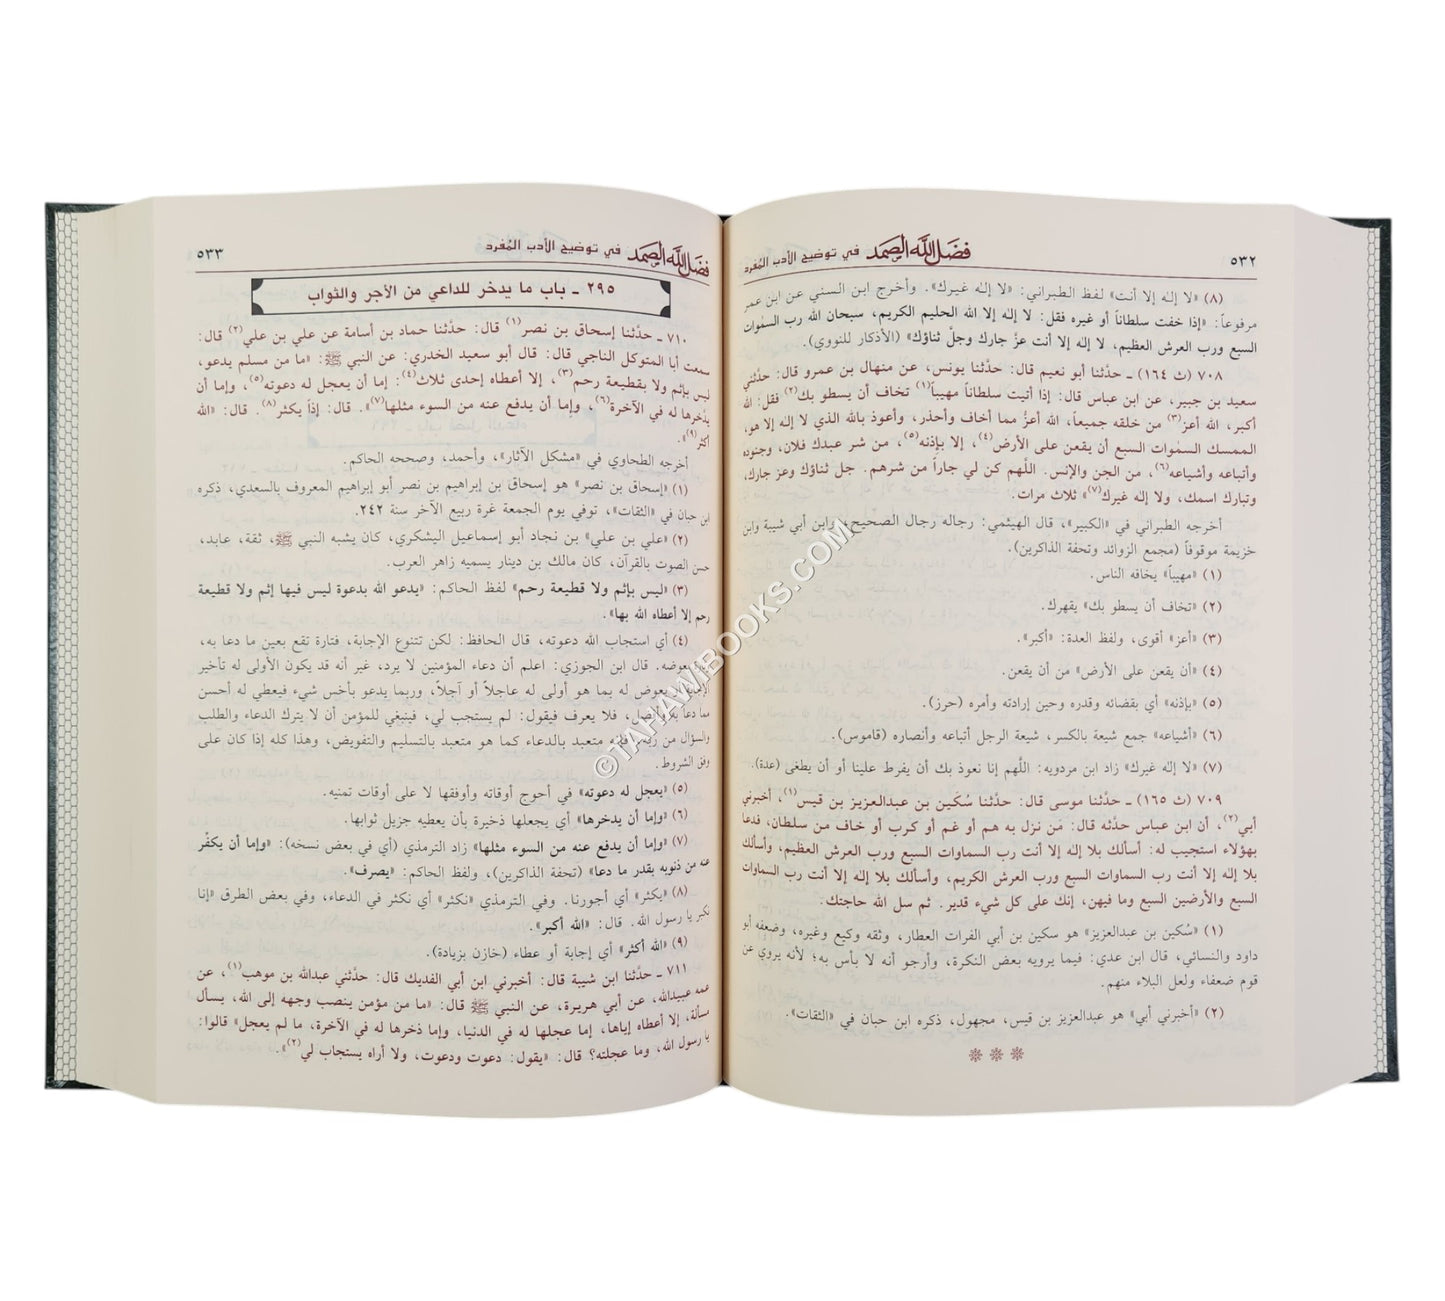 ٥٣٢
فضل الله الصمد في توضيح الأدب المفرد
(٨) «لا إلٰه إلا أنت» لفظ الطبراني: «لا إلٰه غيرك». وأخرج ابن السني عن ابن عمر
مرفوعاً: «إذا خفت سلطاناً أو غيره فقل: لا إلٰه إلا الله الحليم الكريم، سبحان الله رب السمٰوات
السبع ورب العرش العظيم، لا إلٰه إلا أنت عزَّ جارك وجلَّ ثناؤك» (الأذكار للنووي).
٧٠٨ (ث ١٦٤) ـ حدَّثنا أبو نعيم قال: حدَّثنا يونس، عن منهال بن عمرو قال: حدَّثني
سعيد بن جبير، عن ابن عباس قال: إذا أتيت سلطاناً مهيباً(١) تخاف أن يسطو بك(٢) فقل: الله
أكبر، الله أعز(٣) من خلقه جميعاً، الله أعزُّ مما أخاف وأحذر، وأعوذ بالله الذي لا إلٰه إلا هو،
الممسك السمٰوات السبع أن يقعن على الأرض(٤)، إلا بإذنه(٥)، من شر عبدك فلان، وجنوده
وأتباعه وأشياعه(٦)، من الجن والإنس. اللَّهم كن لي جاراً من شرهم. جل ثناؤك وعز جارك،
وتبارك اسمك، ولا إلٰه غيرك(٧)» ثلاث مرات.
أخرجه الطبراني في «الكبير»، قال الهيثمي: رجاله رجال الصحيح، وابن أبي شيبة وابن
خزيمة موقوفاً (مجمع الزوائد وتحفة الذاكرين).
(١) «مهيباً» يخافه الناس.
(٢) «تخاف أن يسطو بك» يقهرك.
(٣) «أعز» أقوى، ولفظ العدة: «أكبر».
(٤) «أن يقعن على الأرض» من أن يقعن.
(٥) «بإذنه» أي بقضائه وقدره وحين إرادته وأمره (حرز).
(٦) «أشياعه» جمع شيعة بالكسر، شيعة الرجل أتباعه وأنصاره (قاموس).
(٧) «لا إلٰه غيرك» زاد ابن مردويه: اللَّهم إنا نعوذ بك أن يفرط علينا أو أن يطغى (عدة).
٧٠٩ (ث ١٦٥) ـ حدَّثنا موسى قال: حدَّثنا سُكَين بن عبدالعزيز بن قيس(١)، أخبرني
أبي(٢)، أن ابن عباس حدَّثه قال: مَن نزل به هم أو غم أو كرب أو خاف من سلطان، فدعا
بهؤلاء استجيب له: أسألك بلا إلٰه إلا أنت رب السماوات السبع ورب العرش العظيم، وأسألك
بلا إلٰه إلا أنت رب السماوات السبع ورب العرش الكريم، وأسألك بلا إلٰه إلا أنت رب السماوات
السبع والأرضين السبع وما فيهن، إنك على كل شيء قدير. ثم سل الله حاجتك.
(١) «سُكين بن عبدالعزيز» هو سكين بن أبي الفرات العطار، وثقه وكيع وغيره، وضعفه أبو
داود والنسائي، قال ابن عدي: فيما يرويه بعض النكرة، وأرجو أنه لا بأس به؛ لأنه يروي عن
قوم ضعفاء ولعل البلاء منهم.
(٢) «أخبرني أبي» هو عبدالعزيز بن قيس، مجهول، ذكره ابن حبان في «الثقات».
فضل الله الصمد في توضيح الأدب المفرد
٥٣٣
٢٩٥ ـ باب ما يدخر للداعي من الأجر والثواب
٧١٠ ـ حدَّثنا إسحاق بن نصر(١) قال: حدَّثنا حماد بن أسامة عن علي بن علي(٢) قال:
سمعت أبا المتوكل الناجي قال: قال أبو سعيد الخدري: عن النبي ﷺ: «ما من مسلم يدعو،
ليس بإثم ولا بقطيعة رحم(٣)، إلا أعطاه إحدى ثلاث(٤): إما أن يعجل له دعوته(٥)، وإما أن
يدَّخرها له في الآخرة(٦)، وإما أن يدفع عنه من السوء مثلها(٧)». قال: إذاً يكثر(٨). قال: «الله
أكثر(٩)».
أخرجه الطحاوي في «مشكل الآثار»، وأحمد، وصححه الحاكم.
(١) «إسحاق بن نصر» هو إسحاق بن إبراهيم بن نصر أبو إبراهيم المعروف بالسعدي، ذكره
ابن حبان في «الثقات»، توفي يوم الجمعة غرة ربيع الآخر سنة ٢٤٢.
(٢) «علي بن علي» بن نجاد أبو إسماعيل اليشكري، كان يشبه النبي ﷺ، ثقة، عابد،
حسن الصوت بالقرآن، كان مالك بن دينار يسميه زاهر العرب.
(٣) «ليس بإثم ولا قطيعة رحم» لفظ الحاكم: «يدعو الله بدعوة ليس فيها إثم ولا قطيعة
رحم إلا أعطاه الله بها».
(٤) أي استجاب الله دعوته، قال الحافظ: لكن تتنوع الإجابة، فتارة تقع بعين ما دعا به،
بعوضه. قال ابن الجوزي: اعلم أن دعاء المؤمنين لا يرد، غير أنه قد يكون الأولى له تأخير
يعوض له بما هو أولى له عاجلاً أو آجلاً، وربما يدعو بأخس شيء فيعطي له أحسن
مما دعا فلا يعرف فيقول: لم يستجب لي، فينبغي للمؤمن أن لا يترك الدعاء والطلب
والسؤال من ربه، فإنه متعبد بالدعاء كما هو متعبد بالتسليم والتفويض، وهذا كله إذا كان على
وفق الشروط.
(٥) «يعجل له دعوته» في أحوج أوقاته وأوفقها لا على أوقات تمنيه.
(٦) «وإما أن يدخرها» أي يجعلها ذخيرة بأن يعطيه جزيل ثوابها.
(٧) «وإما أن يدفع عنه من السوء مثلها» زاد الترمذي (أي في بعض نسخه): «وإما أن يكفّر
عنه من ذنوبه بقدر ما دعا» (تحفة الذاكرين)، ولفظ الحاكم: «يصرف».
(٨) «يكثر» أي أجورنا. وفي الترمذي «نكثر» أي نكثر في الدعاء، وفي بعض الطرق «إنا
نكبر يا رسول الله. قال: «الله أكبر».
(٩) «الله أكثر» أي إجابة أو عطاء (خازن بزيادة).
٧١١ ـ حدَّثنا ابن شيبة قال: أخبرني ابن أبي الفديك قال: حدَّثني عبدالله بن موهب(١)، عن
عمه عبيدالله، عن أبي هريرة، عن النبي ﷺ قال: «ما من مؤمن ينصب وجهه إلى الله، يسأل
مسألة، إلا أعطاه إياها، إما عجلها له في الدنيا، وإما ذخرها له في الآخرة، ما لم يعجل» قالوا:
يا رسول الله، وما عجلته؟ قال: «يقول: دعوت ودعوت، ولا أراه يستجاب لي(٢)».
©TAHAWIBOOKS.COM